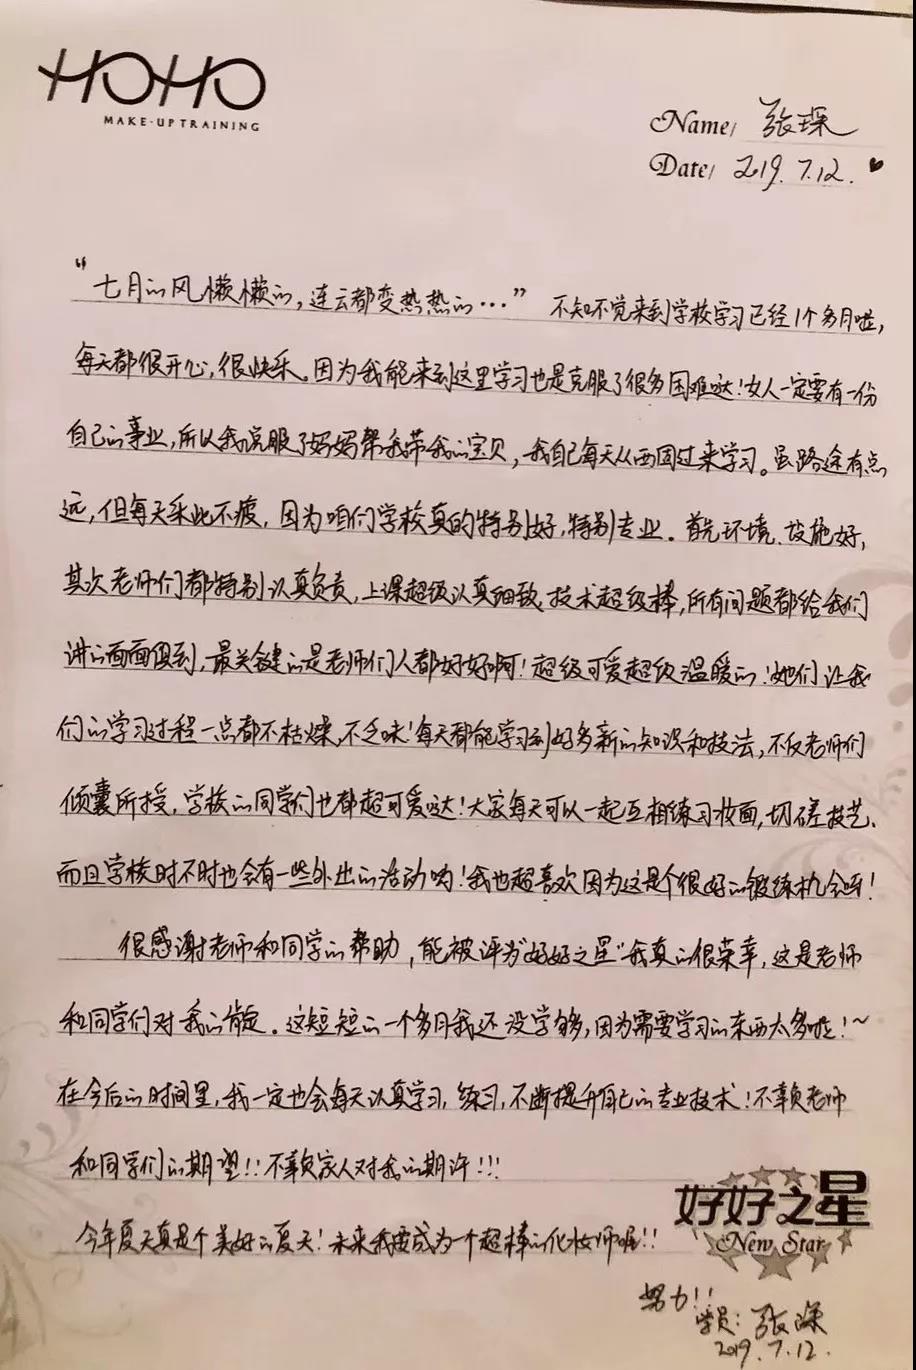 HOHO
MAKE-UP TRAINING
Name/ 张琛
Date/ 2019.7.12.
“七月的风懒懒的，连云都变热热的…” 不知不觉来到学校学习已经1个多月啦，
每天都很开心，很快乐。因为我能来到这里学习也是克服了很多困难哒！女人一定要有一份
自己的事业，所以我说服了妈妈帮我带我的宝贝，我自己每天从西固过来学习。虽路途有点
远，但每天乐此不疲，因为咱们学校真的特别好，特别专业。首先环境、设施好，
其次老师们都特别认真负责，上课超级认真细致，技术超级棒，所有问题都给我们
讲的面面俱到，最关键的是老师们人都好好啊！超级可爱超级温暖的！她们让我
们的学习过程一点都不枯燥，不乏味！每天都能学习到好多新的知识和技法，不仅老师们
倾囊所授，学校的同学们也都超可爱哒！大家每天可以一起互相练习妆面，切磋技艺、
而且学校时不时也会有一些外出的活动哟！我也超喜欢因为这是个很好的锻练机会呀！
很感谢老师和同学的帮助，能被评为“好好之星”我真的很荣幸，这是老师
和同学们对我的肯定。这短短的一个多月我还没学够，因为需要学习的东西太多啦！~
在今后的时间里，我一定也会每天认真学习，练习，不断提升自己的专业技术！不辜负老师
和同学们的期望！！不辜负家人对我的期许！！！
今年夏天真是个美好的夏天！未来我要成为一个超棒的化妆师喔！！
好好之星
New Star
努力！！
学员：张琛
2019.7.12.